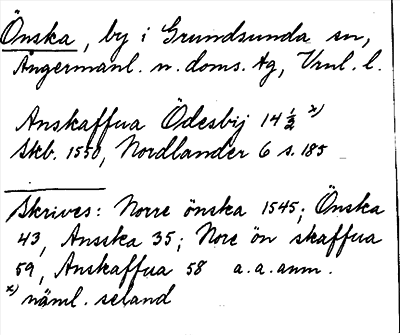 Önska, by i Grundsunda sn,
Ångermanl. n. doms. tg, Vnl. l.
Anskaffua Ödesbij 14 ½ x)
Skb. 1550, Nordlander 6 s. 185
Skrives: Norre önska 1545; Önska
43, Ansska 35; Nore ön skaffua
59, Anskaffua 58 a.a. anm.
x) näml. seland